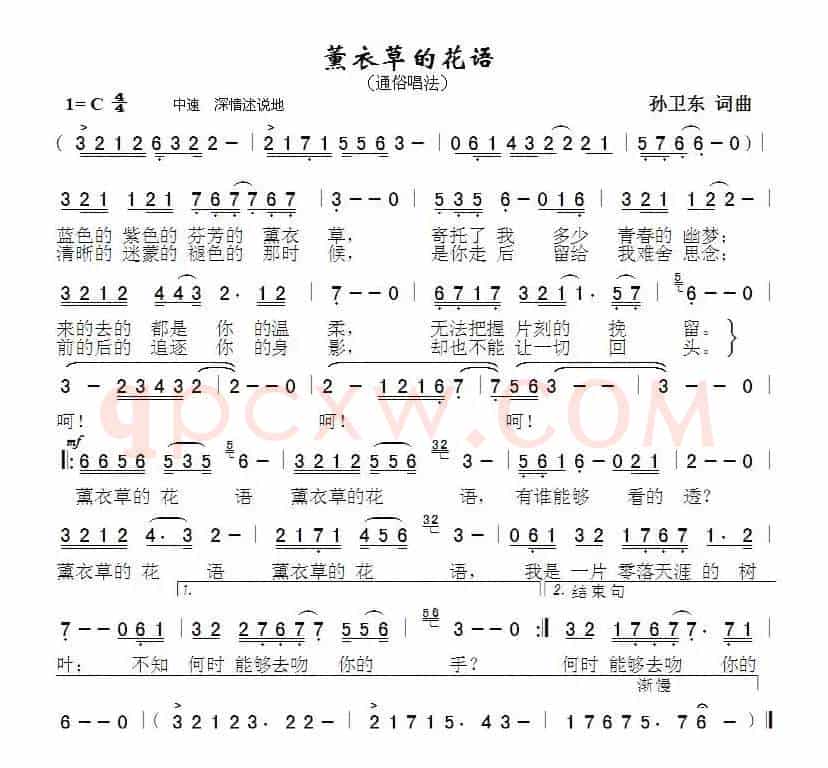 薰衣草的花语
（通俗唱法）
1=C 4/4 中速 深情述说地 孙卫东 词曲
( 3 2 1 2 6 3 2 2 – | 2 1 7 1 5 5 6 3 – | 0 6 1 4 3 2 2 2 1 | 5 7 6 6 – 0 ) |
3 2 1 1 2 1 7 6 7 7 6 7 | 3 – – 0 | 5 3 5 6 – 0 1 6 | 3 2 1 1 2 2 – |
蓝色的 紫色的 芬芳的 薰衣 草， 寄托了 我 多少 青春的 幽梦；
清晰的 迷蒙的 褪色的 那时 候， 是你走 后 留给 我难舍 思念；
3 2 1 2 4 4 3 2 . 1 2 | 7 – – 0 | 6 7 1 7 3 2 1 1 . 5 7 | 5 6 – – 0 |
来的去的 都是 你 的温 柔， 无法把握 片刻的 挽 留。
前的后的 追逐 你 的身 影， 却也不能 让一切 回 头。
3 – 2 3 4 3 2 | 2 – – 0 | 2 – 1 2 1 6 7 | 7 5 6 3 – – | 3 – – 0 |
呵！ 呵！ 呵！
qpcxw.COM
mf
‖: 6 6 5 6 5 3 5 5 6 – | 3 2 1 2 5 5 5 3 2 3 – | 5 6 1 6 – 0 2 1 | 2 – – 0 |
薰衣草的 花 语 薰衣草的花 语， 有谁能够 看的 透？
3 2 1 2 4 . 3 2 – | 2 1 7 1 4 5 6 3 2 3 – | 0 6 1 3 2 1 7 6 7 1 . 2 |
薰衣草的 花 语 薰衣草的花 语， 我是 一片 零落天涯 的 树
1. 2. 结束句
7 – – 0 6 1 | 3 2 2 7 6 7 7 5 5 6 | 5 6 3 – – 0 :‖ 3 2 1 7 6 7 7 . 7 1 |
叶； 不知 何时 能够去吻 你的 手？ 何时 能够去吻 你的
渐慢
6 – – 0 ( 3 2 1 2 3 . 2 2 . 2 2 | 2 1 7 1 5 . 4 3 – | 1 7 6 7 5 . 7 6 – ) ‖